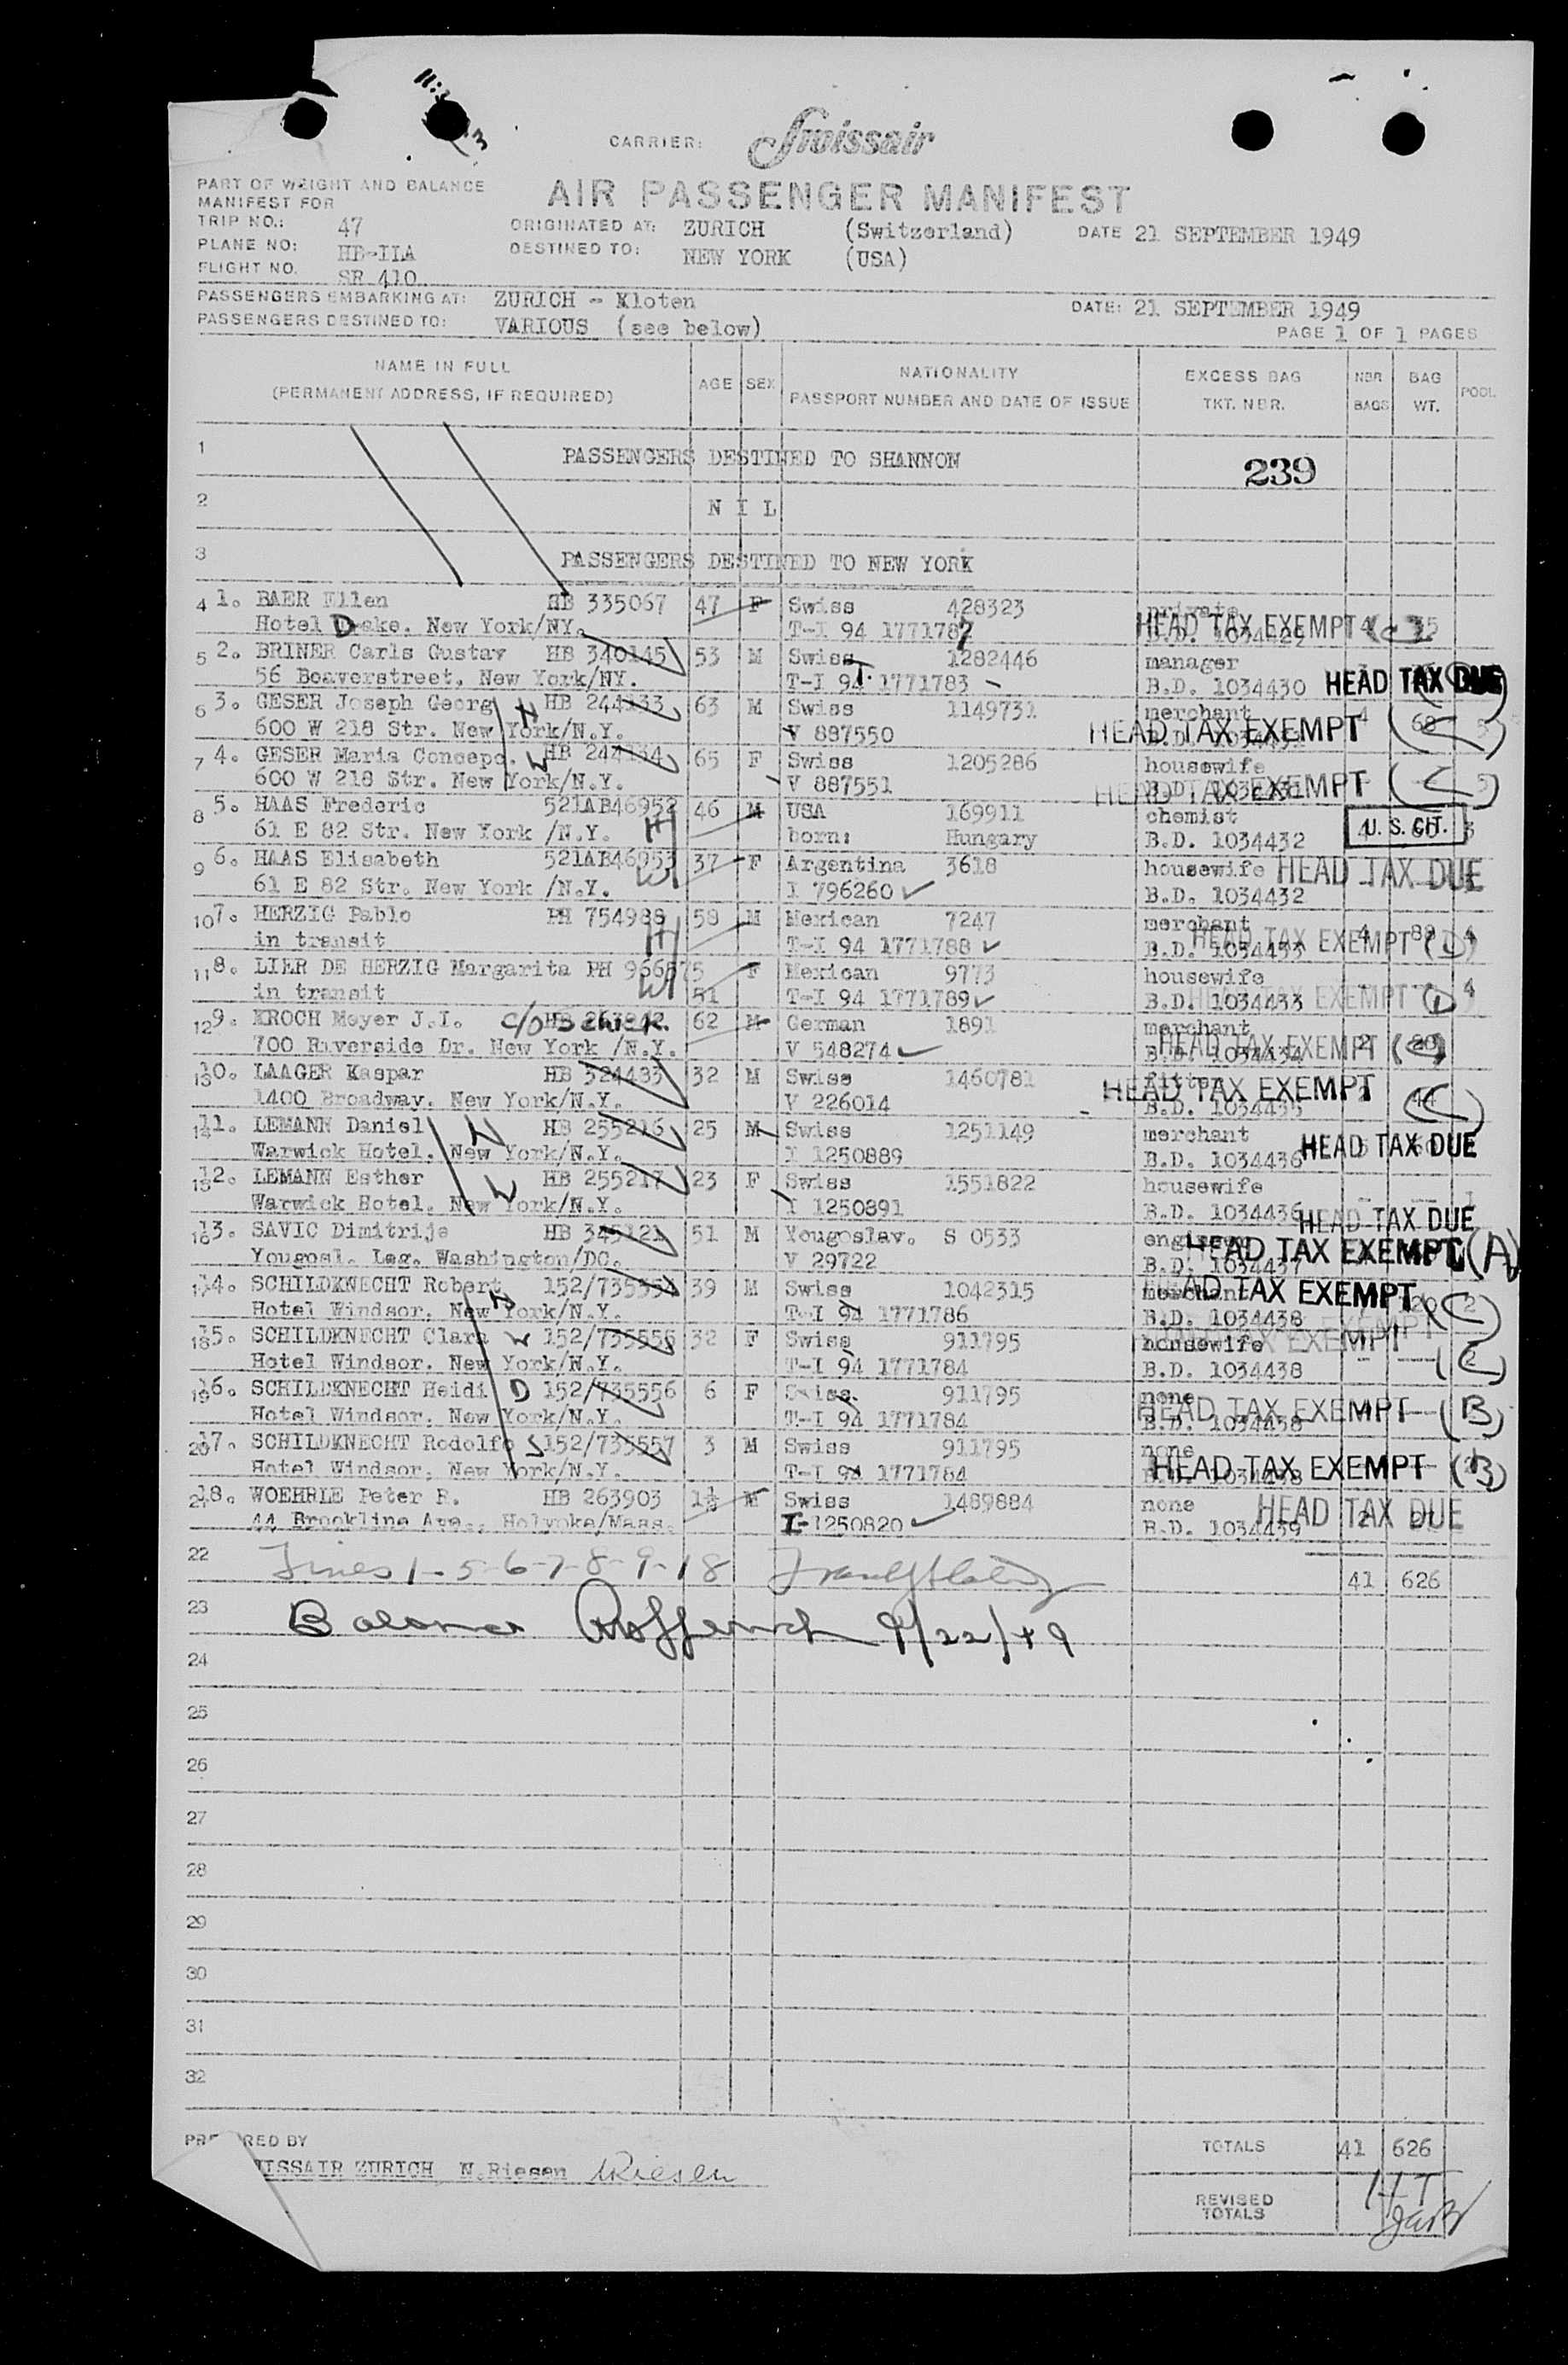 CARRIER: Swissair
AIR PASSENGER MANIFEST
PART OF WEIGHT AND BALANCE
MANIFEST FOR
TRIP NO.: 47
PLANE NO: HB-ILA
FLIGHT NO. SR 410
ORIGINATED AT: ZURICH (Switzerland) DATE 21 SEPTEMBER 1949
DESTINED TO: NEW YORK (USA)
PASSENGERS EMBARKING AT: ZURICH - Kloten DATE: 21 SEPTEMBER 1949
PASSENGERS DESTINED TO: VARIOUS (see below)
PAGE 1 OF 1 PAGES
NAME IN FULL AGE SEX NATIONALITY EXCESS BAG NBR BAG POOL
(PERMANENT ADDRESS, IF REQUIRED) PASSPORT NUMBER AND DATE OF ISSUE TKT. NBR. BAGS WT.
1 PASSENGERS DESTINED TO SHANNON 239
2 N I L
3 PASSENGERS DESTINED TO NEW YORK
4 1. BAER Ellen HB 335067 47 F Swiss 428323 private
Hotel Drake. New York/NY. T-I 94 1771787 B.D. 1034429 HEAD TAX EXEMPT (C)
5 2. BRINER Carls Gustav HB 340145 53 M Swiss 1282446 manager
56 Beaverstreet. New York/NY. T-I 94 T. 1771783 B.D. 1034430 HEAD TAX DUE
6 3. GESER Joseph Georg H HB 244133 63 M Swiss 1149731 merchant
600 W 218 Str. New York/N.Y. V 887550 HEAD TAX EXEMPT (C)
7 4. GESER Maria Concepc. W HB 244134 65 F Swiss 1205286 housewife
600 W 218 Str. New York/N.Y. V 887551 HEAD TAX EXEMPT (C) 5
8 5. HAAS Frederic 521AB46952 46 M USA 169911 chemist
61 E 82 Str. New York /N.Y. H born: Hungary B.D. 1034432 U. S. CIT. 3
9 6. HAAS Elisabeth 521AB46953 37 F Argentina 3618 housewife HEAD TAX DUE
61 E 82 Str. New York /N.Y. W I 796260 B.D. 1034432
10 7. HERZIG Pablo PH 754988 58 M Mexican 7247 merchant 4 88 4
in transit H T-I 94 1771788 B.D. 1034433 HEAD TAX EXEMPT (D)
11 8. LIER DE HERZIG Margarita PH 966575 F Mexican 9773 housewife 4
in transit W 51 T-I 94 1771789 B.D. 1034433 HEAD TAX EXEMPT (D)
12 9. KROCH Meyer J.I. c/o Schick. 62 M German 1891 merchant
700 Riverside Dr. New York /N.Y. V 548274 B.D. 1034434 HEAD TAX EXEMPT (C)
13 10. LAAGER Kaspar HB 324483 32 M Swiss 1460781 fitter
1400 Broadway. New York/N.Y. V 226014 B.D. 1034435 HEAD TAX EXEMPT (C)
14 11. LEMANN Daniel H HB 255216 25 M Swiss 1251149 merchant
Warwick Hotel. New York/N.Y. I 1250889 B.D. 1034436 HEAD TAX DUE
15 12. LEMANN Esther W HB 255217 23 F Swiss 1551822 housewife
Warwick Hotel. New York/N.Y. I 1250891 B.D. 1034436 HEAD TAX DUE
16 13. SAVIC Dimitrije HB 345121 51 M Yougoslav. S 0533 engineer
Yougosl. Leg. Washington/DC. V 29722 B.D. 1034437 HEAD TAX EXEMPT (A)
17 14. SCHILDKNECHT Robert H 152/735554 39 M Swiss 1042315 merchant
Hotel Windsor. New York/N.Y. T-I 94 1771786 B.D. 1034438 HEAD TAX EXEMPT (C)
18 15. SCHILDKNECHT Clara W 152/735555 32 F Swiss 911795 housewife
Hotel Windsor. New York/N.Y. T-I 94 1771784 B.D. 1034438 HEAD TAX EXEMPT (C)
19 16. SCHILDKNECHT Heidi D 152/735556 6 F Swiss 911795 none
Hotel Windsor. New York/N.Y. T-I 94 1771784 B.D. 1034438 HEAD TAX EXEMPT (B)
20 17. SCHILDKNECHT Rodolfo S 152/735557 3 M Swiss 911795 none
Hotel Windsor. New York/N.Y. T-I 94 1771784 B.D. 1034438 HEAD TAX EXEMPT (B)
21 18. WOEHRLE Peter R. HB 263903 1½ M Swiss 1489884 none HEAD TAX DUE
44 Brookline Ave., Holyoke/Mass. I-1250820 B.D. 1034439
22 Lines 1-5-6-7-8-9-18 41 626
23 Balance 9/22/49
24
25
26
27
28
29
30
31
32
PREPARED BY TOTALS 41 626
SWISSAIR ZURICH N.Riesen NRiesen
REVISED
TOTALS